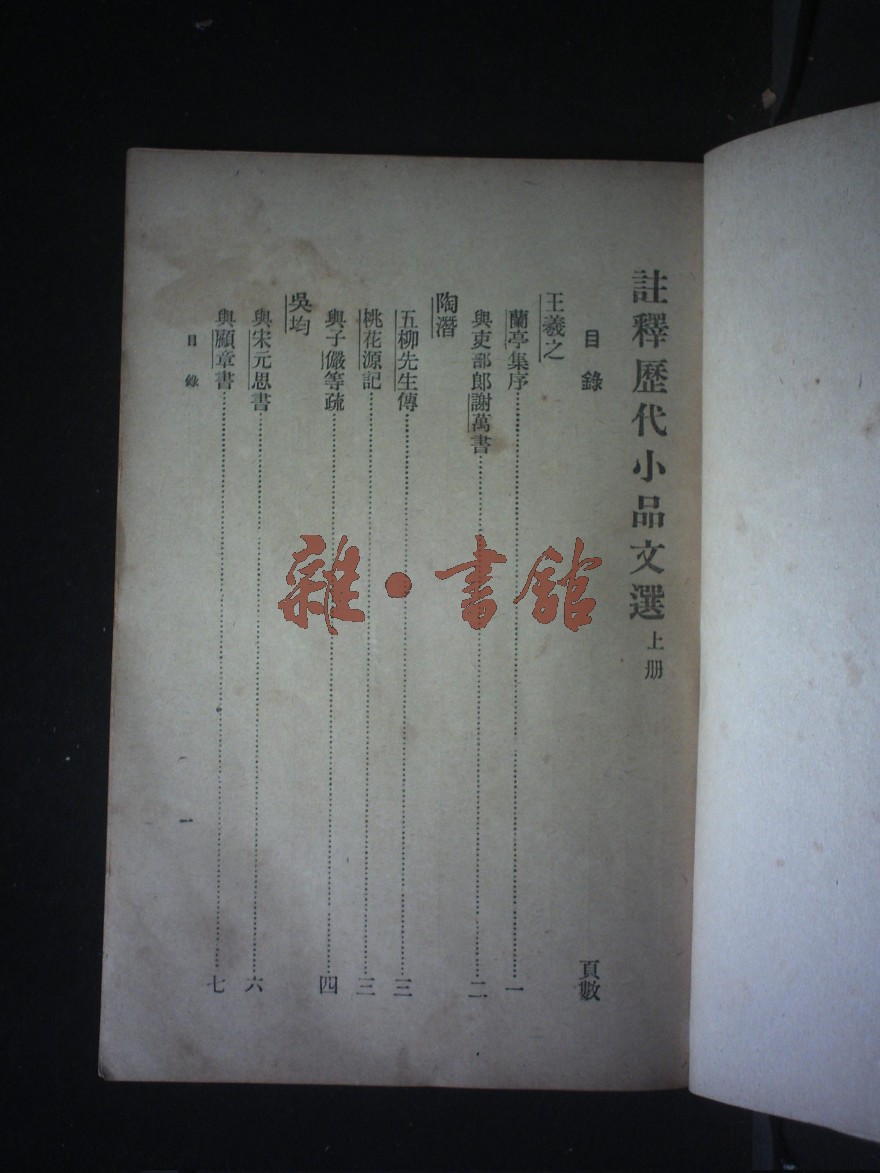 註釋歷代小品文選 上册
目錄 頁數
王羲之
蘭亭集序 一
與吏部郎謝萬書 二
陶潛
五柳先生傳 三
桃花源記 三
與子儼等疏 四
吳均
與宋元思書 六
與顧章書 七
目錄 一
雜·書館